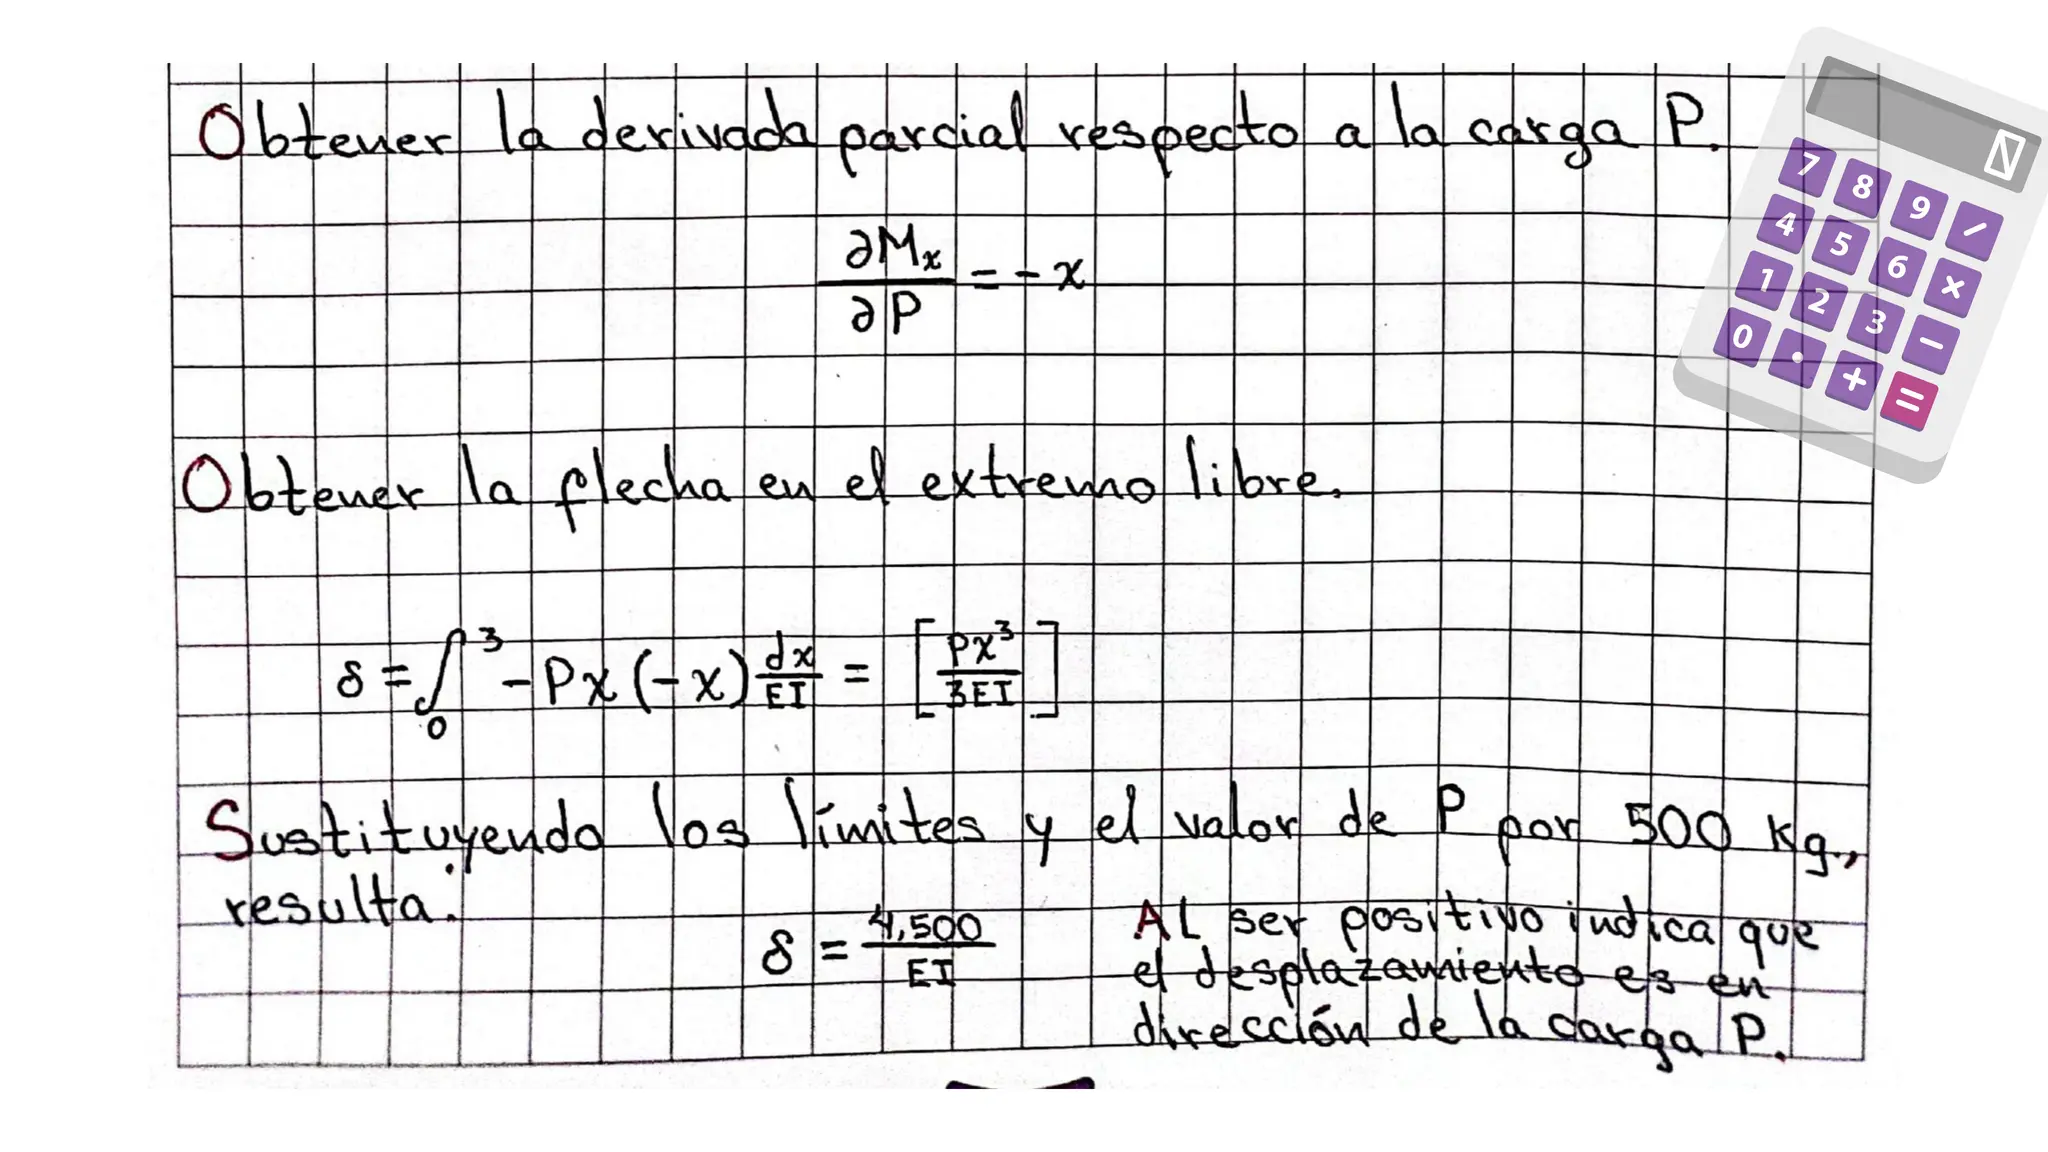 Obtener la derivada parcial respecto a la carga P.
∂Mx/∂P = - x
Obtener la flecha en el extremo libre.
δ = ∫₀³ - Px (-x) dx/EI = [Px³/3EI]
Sustituyendo los límites y el valor de P por 500 Kg.,
resulta:
δ = 4,500/EI
Al ser positivo indica que
el desplazamiento es en
dirección de la carga P.
7 8 9 /
4 5 6 ×
1 2 3 −
0 . + =